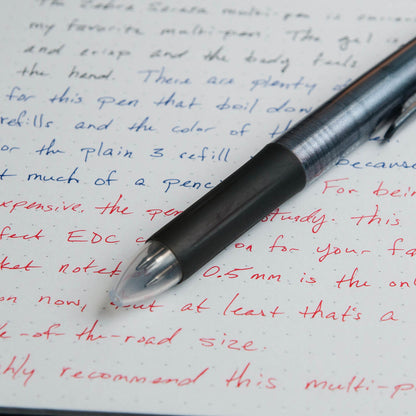 The Zebra Sarasa multi-pen is
my favorite multi-pen. The gel is
and crisp and the body feels
the hand. There are plenty
for this pen that boil down
refills and the color of th
or the plain 3 refill because
t much of a penc For bein
xpensive, the pen sturdy. this
fect EDC on for your fa
ket note 0.5mm is the on
on now, but at least that's a
le-of-the-road size.
hly recommend this multi-p